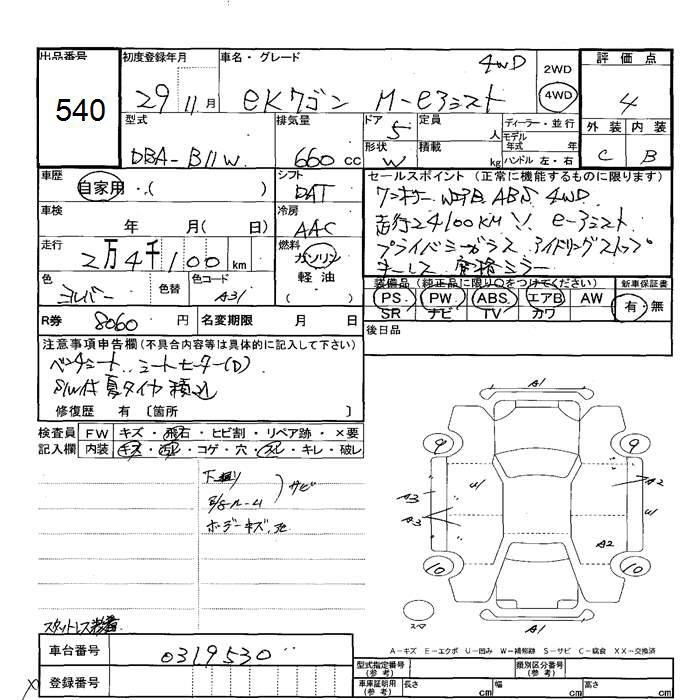 出品番号
540
初度登録年月
29 11月
車名・グレード
eKワゴン M-eアシスト
4WD
2WD
4WD
評価点
4
外装 内装
C B
型式
DBA-B11W
排気量
660 cc
ドア 5
形状 W
定員 人
積載 kg
ディーラー・並行
モデル年式 年
ハンドル 左・右
車歴
自家用・( )
シフト
DAT
車検
年 月( 日)
冷房
AAC
走行
2万4千100 km
燃料
ガソリン
軽油
( )
色
シルバー
色替
色コード
A31
R券 8060 円
名変期限 月 日
セールスポイント (正常に機能するものに限ります)
ワンオーナー WエアB ABS 4WD
走行24100KM e-アシスト
プライバシーガラス アイドリングストップ
キーレス 電格ミラー
装備品 (純正品に限り○をつけてください)
PS PW ABS エアB AW
SR ナビ TV カワ
新車保証書
有・無
後日品
注意事項申告欄 (不具合内容等は具体的に記入して下さい)
ベンチシート、シートヒーター(D)
S/W付夏タイヤ積込
修復歴 有 〔箇所 〕
検査員記入欄
FW キズ・飛石・ヒビ割・リペア跡・×要
内装 キズ・汚レ・コゲ・穴・スレ・キレ・破レ
下廻り
サビ
ボデーキズ、凹
スタットレス装着
車台番号
0319530
登録番号
A1
9 9
A3
A3
U1
A2
U1
A2
10 10
スペア
A1
A-キズ E-エクボ U-凹み W-補修跡 S-サビ C-腐食 XX-交換済
型式指定番号
(参考)
類別区分番号
(参考)
車庫証明用
(参考)
長さ cm
幅 cm
高さ cm